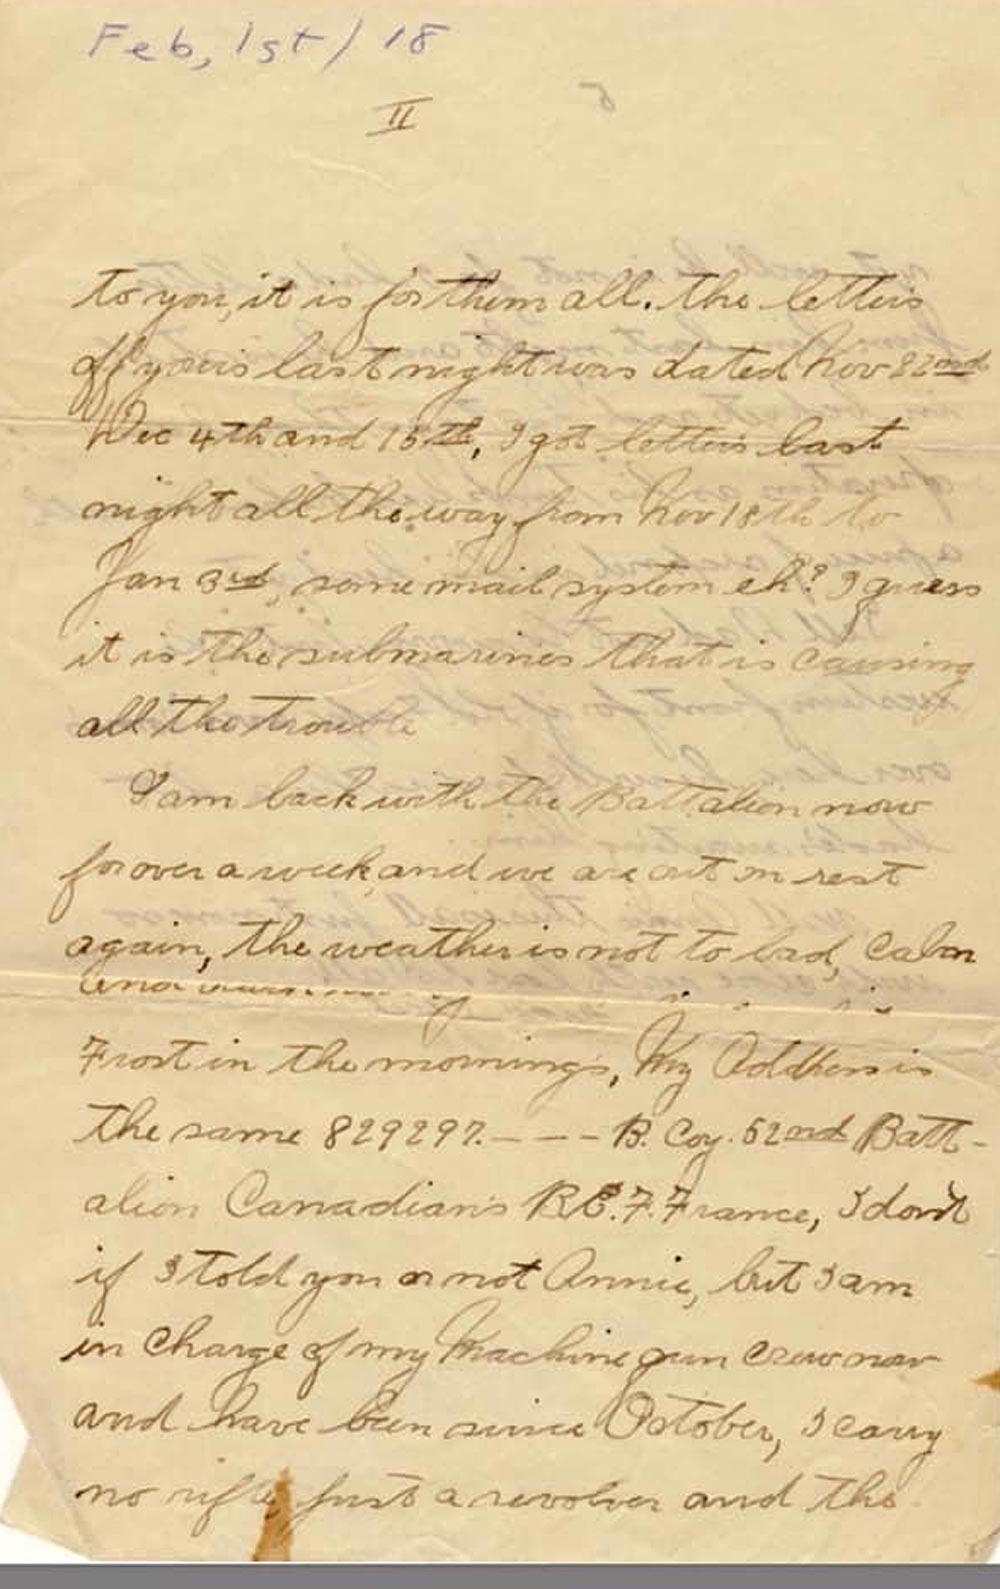 Feb, 1st / 18
II
to you, it is for them all. the letters
off yours last night was dated Nov 22nd
Dec 4th and 15th, I got letters last
night all the way from Nov 18th to
Jan 3rd, some mail system eh? I guess
it is the submarines that is causing
all the trouble
I am back with the Battalion now
for over a week, and we are out on rest
again, the weather is not to bad, Calm
and
Frost in the mornings, My Address is
the same 829297. - - - B. Coy. 52nd Batt-
alion Canadians B.E.F. France, I don't
if I told you or not Annie, but I am
in charge of my Machine gun crew now
and have been since October, I carry
no rifle, just a revolver and the